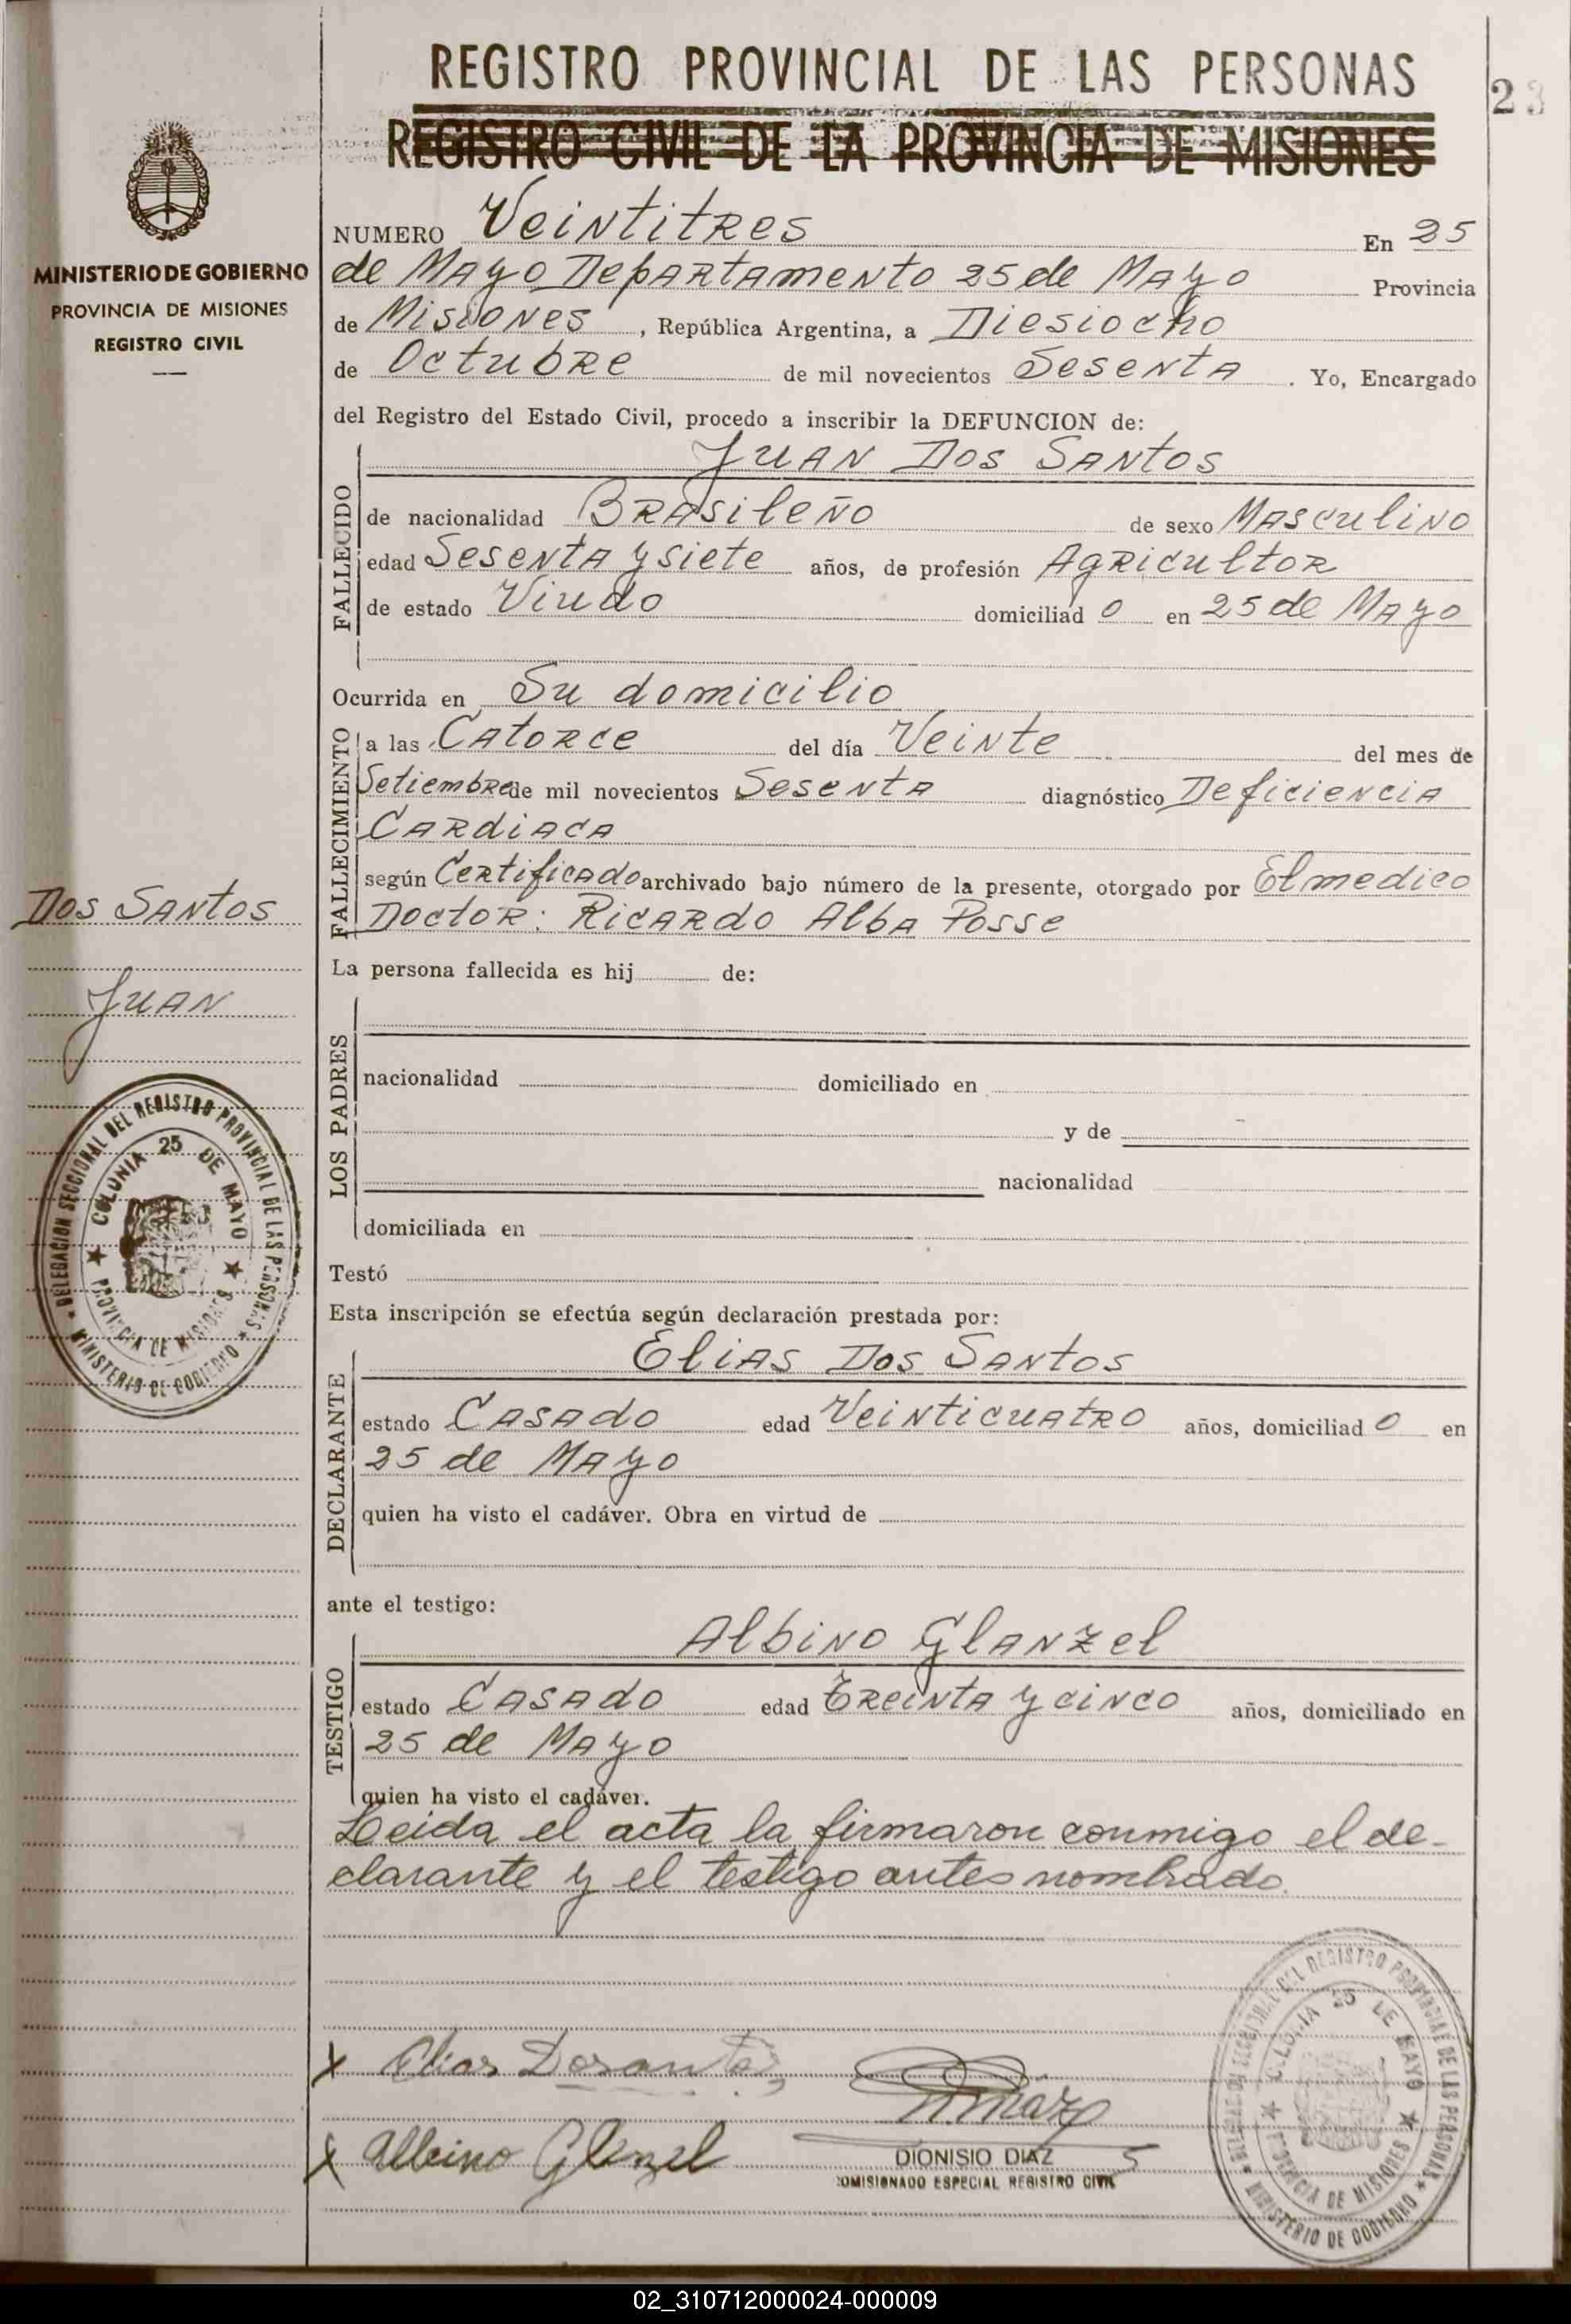 REGISTRO PROVINCIAL DE LAS PERSONAS
23
REGISTRO CIVIL DE LA PROVINCIA DE MISIONES
MINISTERIO DE GOBIERNO
PROVINCIA DE MISIONES
REGISTRO CIVIL
NUMERO Veintitres En 25
de Mayo Departamento 25 de Mayo Provincia
de Misiones, República Argentina, a Diesiocho
de Octubre de mil novecientos Sesenta. Yo, Encargado
del Registro del Estado Civil, procedo a inscribir la DEFUNCION de:
FALLECIDO
Juan Dos Santos
de nacionalidad Brasileño de sexo Masculino
edad Sesenta y siete años, de profesión Agricultor
de estado Viudo domiciliad o en 25 de Mayo
Ocurrida en Su domicilio
FALLECIMIENTO
a las Catorce del día Veinte del mes de
Setiembre de mil novecientos Sesenta diagnóstico Deficiencia
Cardiaca
según Certificado archivado bajo número de la presente, otorgado por El medico
Doctor: Ricardo Alba Posse
Dos Santos
Juan
La persona fallecida es hij de:
LOS PADRES
nacionalidad domiciliado en
y de
nacionalidad
domiciliada en
DELEGACION SECCIONAL DEL REGISTRO PROVINCIAL DE LAS PERSONAS
MINISTERIO DE GOBIERNO
COLONIA 25 DE MAYO
PROVINCIA DE MISIONES
Testó
Esta inscripción se efectúa según declaración prestada por:
DECLARANTE
Elias Dos Santos
estado Casado edad Veinticuatro años, domiciliad o en
25 de Mayo
quien ha visto el cadáver. Obra en virtud de
ante el testigo:
TESTIGO
Albino Glanzel
estado Casado edad Treinta y cinco años, domiciliado en
25 de Mayo
quien ha visto el cadáver.
Leida el acta la firmaron conmigo el de-
clarante y el testigo antes nombrado.
x Elias Dosantos
Diaz
x Albino Glanzel
DIONISIO DIAZ
COMISIONADO ESPECIAL REGISTRO CIVIL
DELEGACION SECCIONAL DEL REGISTRO PROVINCIAL DE LAS PERSONAS
MINISTERIO DE GOBIERNO
COLONIA 25 DE MAYO
PROVINCIA DE MISIONES
02_310712000024-000009